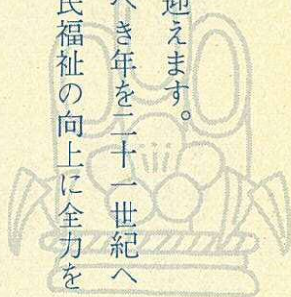 迎えます。
へき年を二十一世紀へ
民福祉の向上に全力を